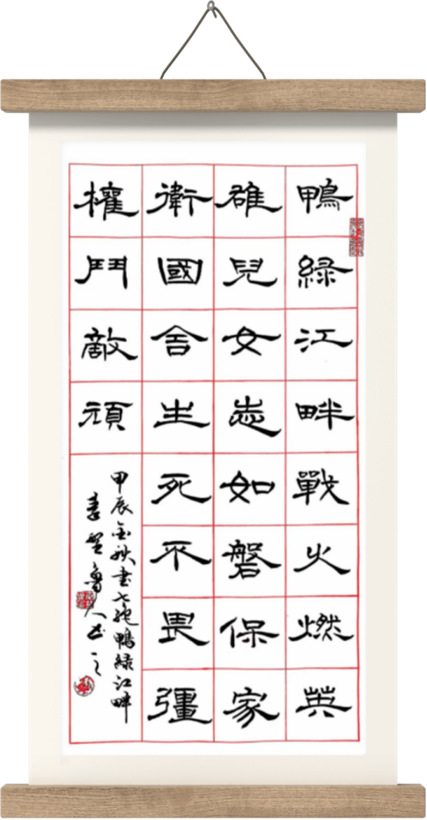 鴨綠江畔戰火燃英
雄兒女志如磐保家
衛國舍生死不畏彊
權鬥敵頑
甲辰金秋書七絕鴨綠江畔
魯人